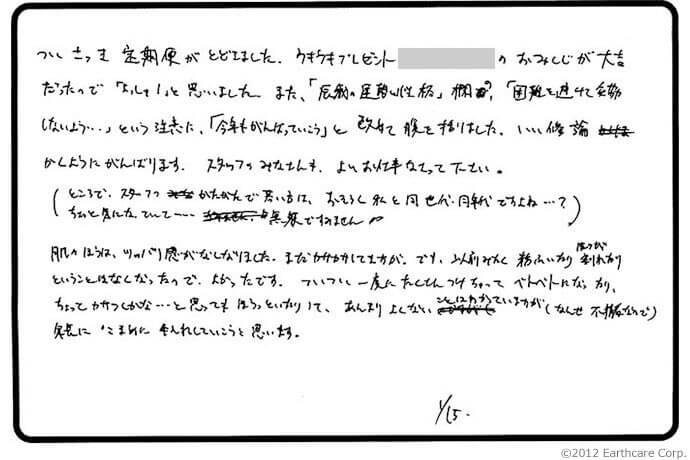 ついさっき 定期便が とどきました。ウキウキプレゼント の おみくじが 大吉
だったので「よしっ!」と 思いました。また、「 の 性格」欄の、「困難を避けて
しないよう…」という 注意に、「今年もがんばっていこう」と 改めて 腹を括りました。いい修論
かくようにがんばります。スタッフの みなさんも、よいお仕事なさって下さい。
(ところで、スタッフの かたがたで 若い方は、おそらく 私と同世代・同年代ですよね…?)
ちょっと気になっていて…… すみません
肌のほうは、ツッパリ感がなくなりました。まだカサカサしてますが。でも、 粉ふいたり ほっぺが 割れたり
ということはなくなったので、よかったです。ついつい 一度に たくさん つけちゃって ベトベトになったり、
ちょっとカサつくかな…と思っても ほうっといたりして、あんまり よくない ことはわかっていますが(なんせ 不精なので)
に こまめに 手入れしていこうと 思います。
1/15.
©2012 Earthcare Corp.